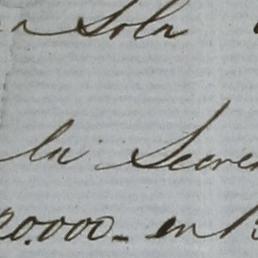 a Sola
la Secre
20.000_ en B